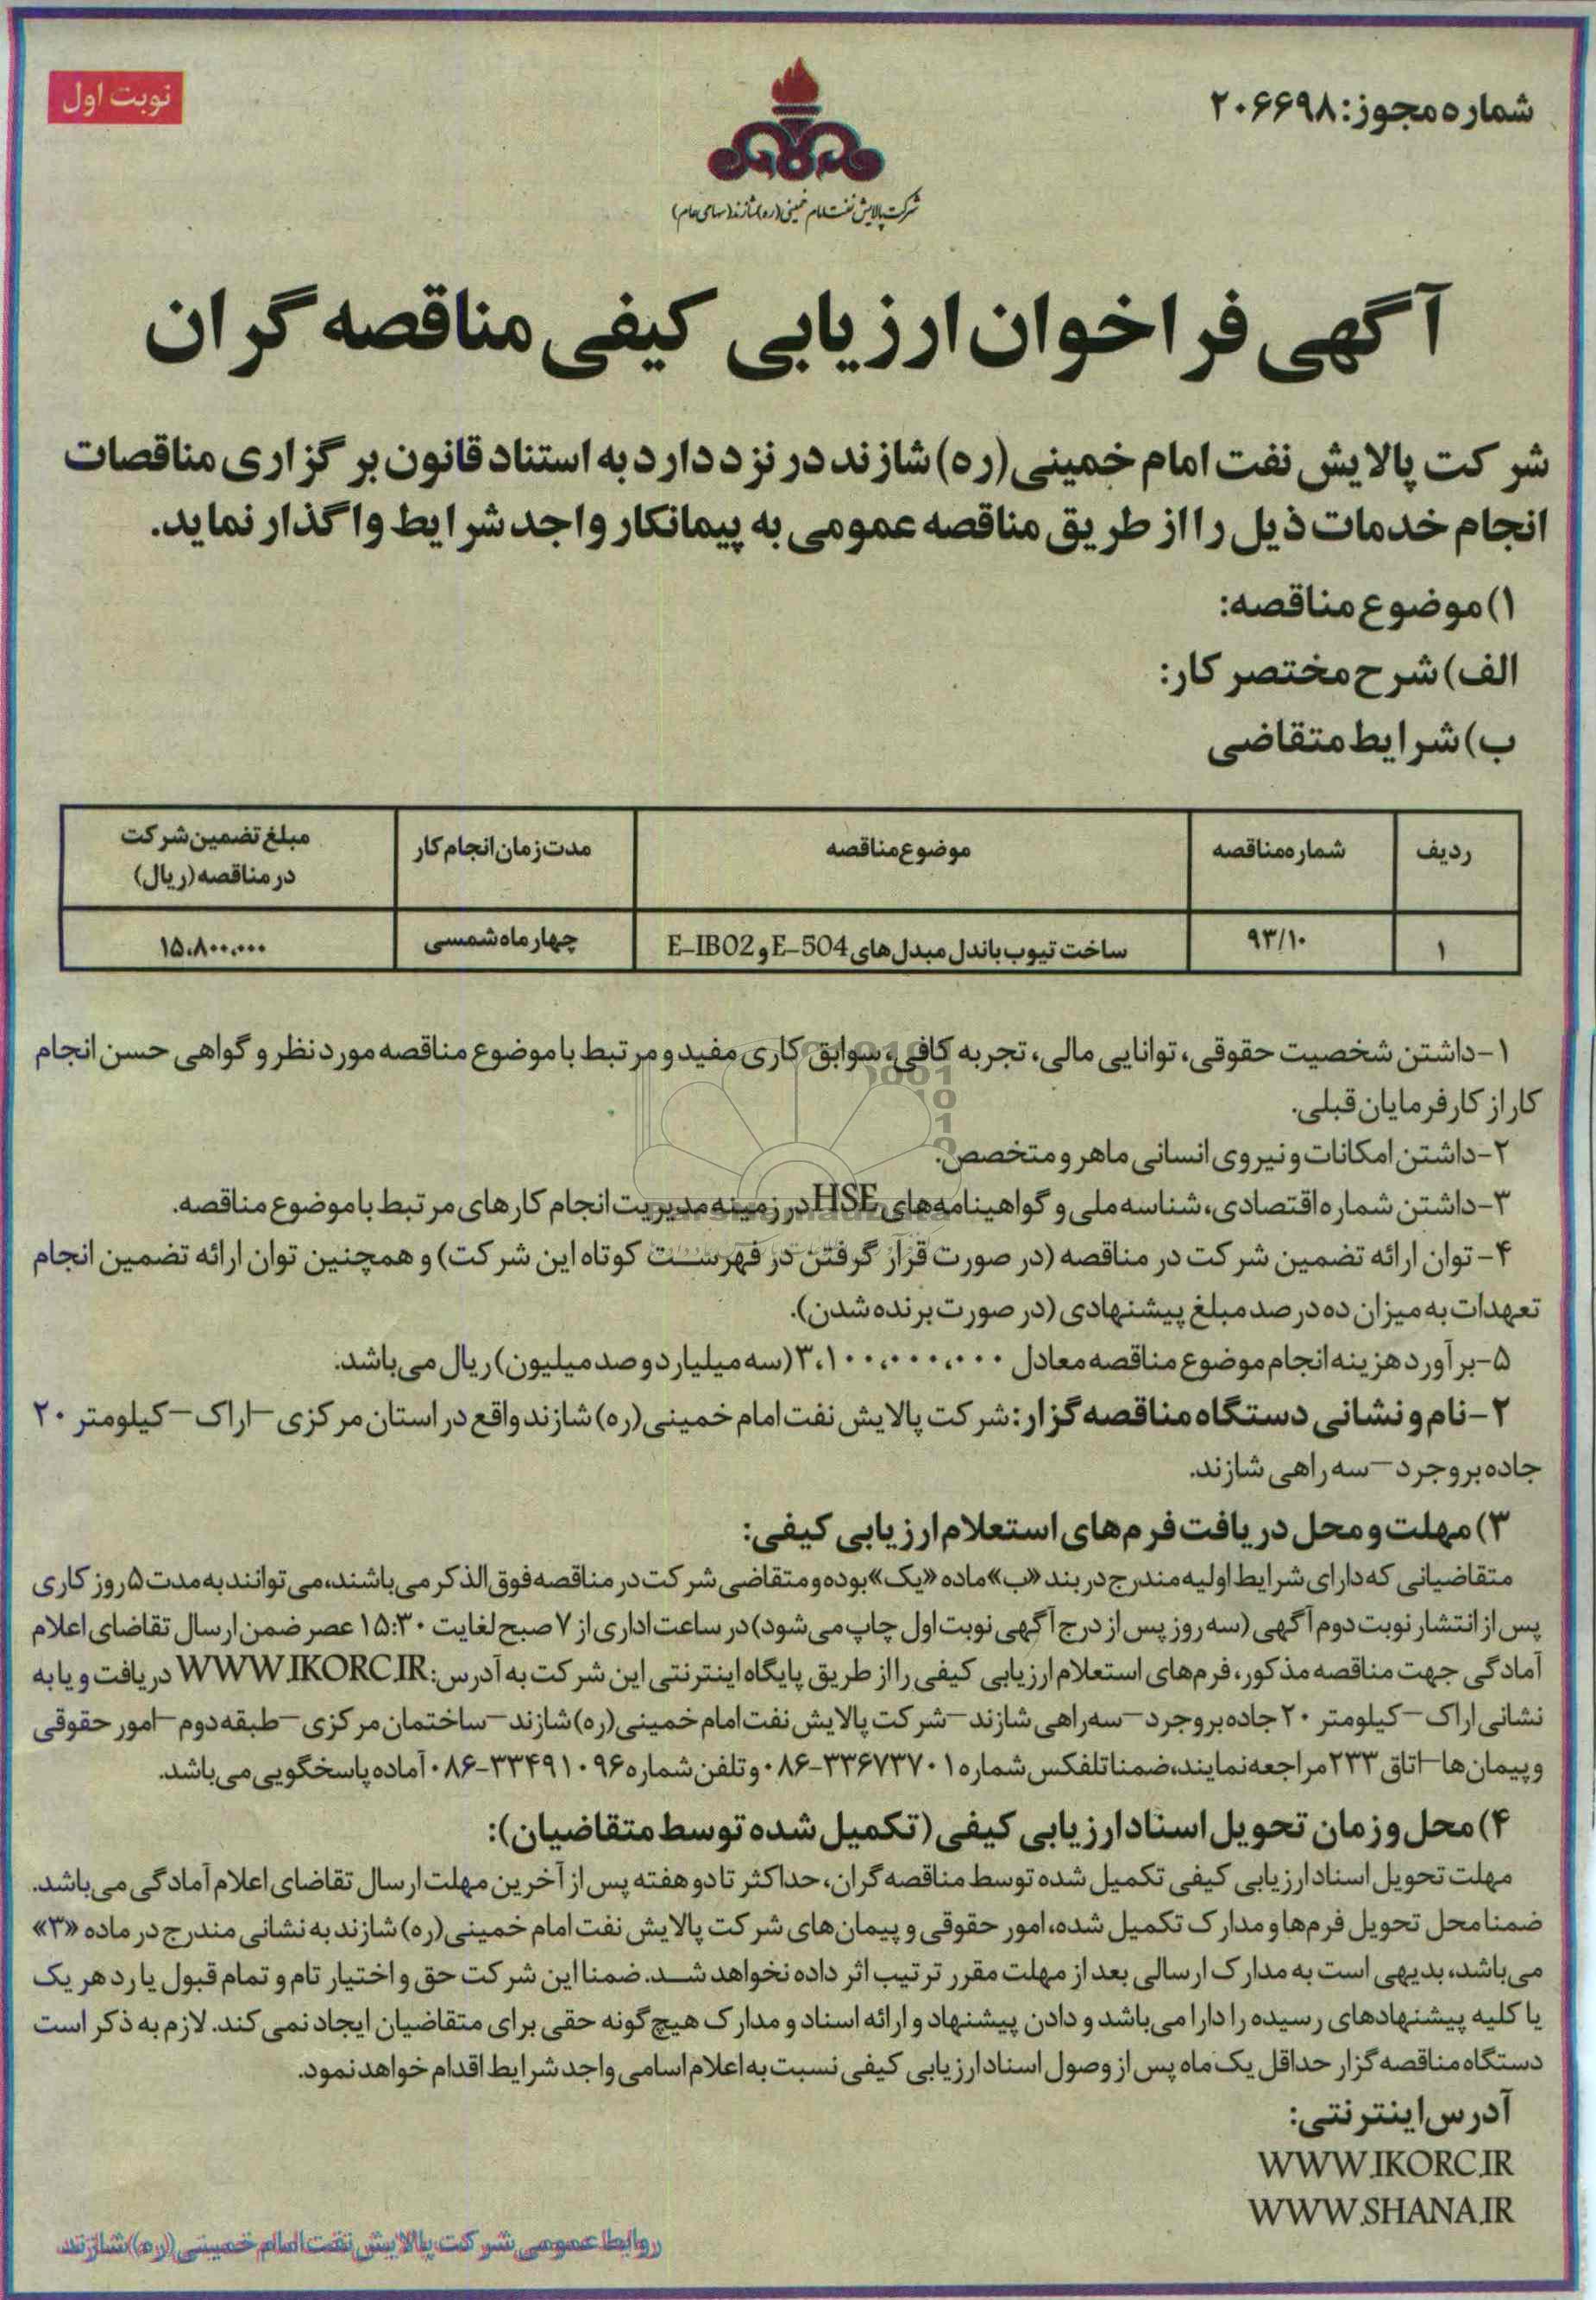 شماره مجوز: ۲۰۶۶۹۸
نوبت اول
شرکت پالایش نفت امام خمینی (ره) شازند (سهامی عام)
آگهی فراخوان ارزیابی کیفی مناقصه گران
شرکت پالایش نفت امام خمینی (ره) شازند در نزد دارد به استناد قانون برگزاری مناقصات
انجام خدمات ذیل را از طریق مناقصه عمومی به پیمانکار واجد شرایط واگذار نماید.
۱) موضوع مناقصه:
الف) شرح مختصر کار:
ب) شرایط متقاضی
ردیف | شماره مناقصه | موضوع مناقصه | مدت زمان انجام کار | مبلغ تضمین شرکت در مناقصه (ریال)
۱ | ۹۳/۱۰ | ساخت تیوب باندل مبدل های E-504 و E-IB02 | چهار ماه شمسی | ۱۵،۸۰۰،۰۰۰
۱- داشتن شخصیت حقوقی، توانایی مالی، تجربه کافی، سوابق کاری مفید و مرتبط با موضوع مناقصه مورد نظر و گواهی حسن انجام
کار از کارفرمایان قبلی.
۲- داشتن امکانات و نیروی انسانی ماهر و متخصص.
۳- داشتن شماره اقتصادی، شناسه ملی و گواهینامه های HSE در زمینه مدیریت انجام کارهای مرتبط با موضوع مناقصه.
۴- توان ارائه تضمین شرکت در مناقصه (در صورت قرار گرفتن در فهرست کوتاه این شرکت) و همچنین توان ارائه تضمین انجام
تعهدات به میزان ده درصد مبلغ پیشنهادی (در صورت برنده شدن).
۵- برآورد هزینه انجام موضوع مناقصه معادل ۳،۱۰۰،۰۰۰،۰۰۰ (سه میلیارد و صد میلیون) ریال می باشد.
۲- نام و نشانی دستگاه مناقصه گزار: شرکت پالایش نفت امام خمینی (ره) شازند واقع در استان مرکزی – اراک – کیلومتر ۲۰
جاده بروجرد – سه راهی شازند.
۳) مهلت و محل دریافت فرم های استعلام ارزیابی کیفی:
متقاضیانی که دارای شرایط اولیه مندرج در بند «ب» ماده «یک» بوده و متقاضی شرکت در مناقصه فوق الذکر می باشند، می توانند به مدت ۵ روز کاری
پس از انتشار نوبت دوم آگهی (سه روز پس از درج آگهی نوبت اول چاپ می شود) در ساعت اداری از ۷ صبح لغایت ۱۵:۳۰ عصر ضمن ارسال تقاضای اعلام
آمادگی جهت مناقصه مذکور، فرم های استعلام ارزیابی کیفی را از طریق پایگاه اینترنتی این شرکت به آدرس: WWW.IKORC.IR دریافت و یا به
نشانی اراک – کیلومتر ۲۰ جاده بروجرد – سه راهی شازند – شرکت پالایش نفت امام خمینی (ره) شازند – ساختمان مرکزی – طبقه دوم – امور حقوقی
و پیمان ها – اتاق ۲۳۳ مراجعه نمایند، ضمنا تلفکس شماره ۳۳۶۷۳۷۰۱-۰۸۶ و تلفن شماره ۳۳۴۹۱۰۹۶-۰۸۶ آماده پاسخگویی می باشد.
۴) محل و زمان تحویل اسناد ارزیابی کیفی (تکمیل شده توسط متقاضیان):
مهلت تحویل اسناد ارزیابی کیفی تکمیل شده توسط مناقصه گران، حداکثر تا دو هفته پس از آخرین مهلت ارسال تقاضای اعلام آمادگی می باشد.
ضمنا محل تحویل فرم ها و مدارک تکمیل شده، امور حقوقی و پیمان های شرکت پالایش نفت امام خمینی (ره) شازند به نشانی مندرج در ماده «۳»
می باشد، بدیهی است به مدارک ارسالی بعد از مهلت مقرر ترتیب اثر داده نخواهد شد. ضمنا این شرکت حق و اختیار تام و تمام قبول یا رد هر یک
یا کلیه پیشنهادهای رسیده را دارا می باشد و دادن پیشنهاد و ارائه اسناد و مدارک هیچ گونه حقی برای متقاضیان ایجاد نمی کند. لازم به ذکر است
دستگاه مناقصه گزار حداقل یک ماه پس از وصول اسناد ارزیابی کیفی نسبت به اعلام اسامی واجد شرایط اقدام خواهد نمود.
آدرس اینترنتی:
WWW.IKORC.IR
WWW.SHANA.IR
روابط عمومی شرکت پالایش نفت امام خمینی (ره) شازند